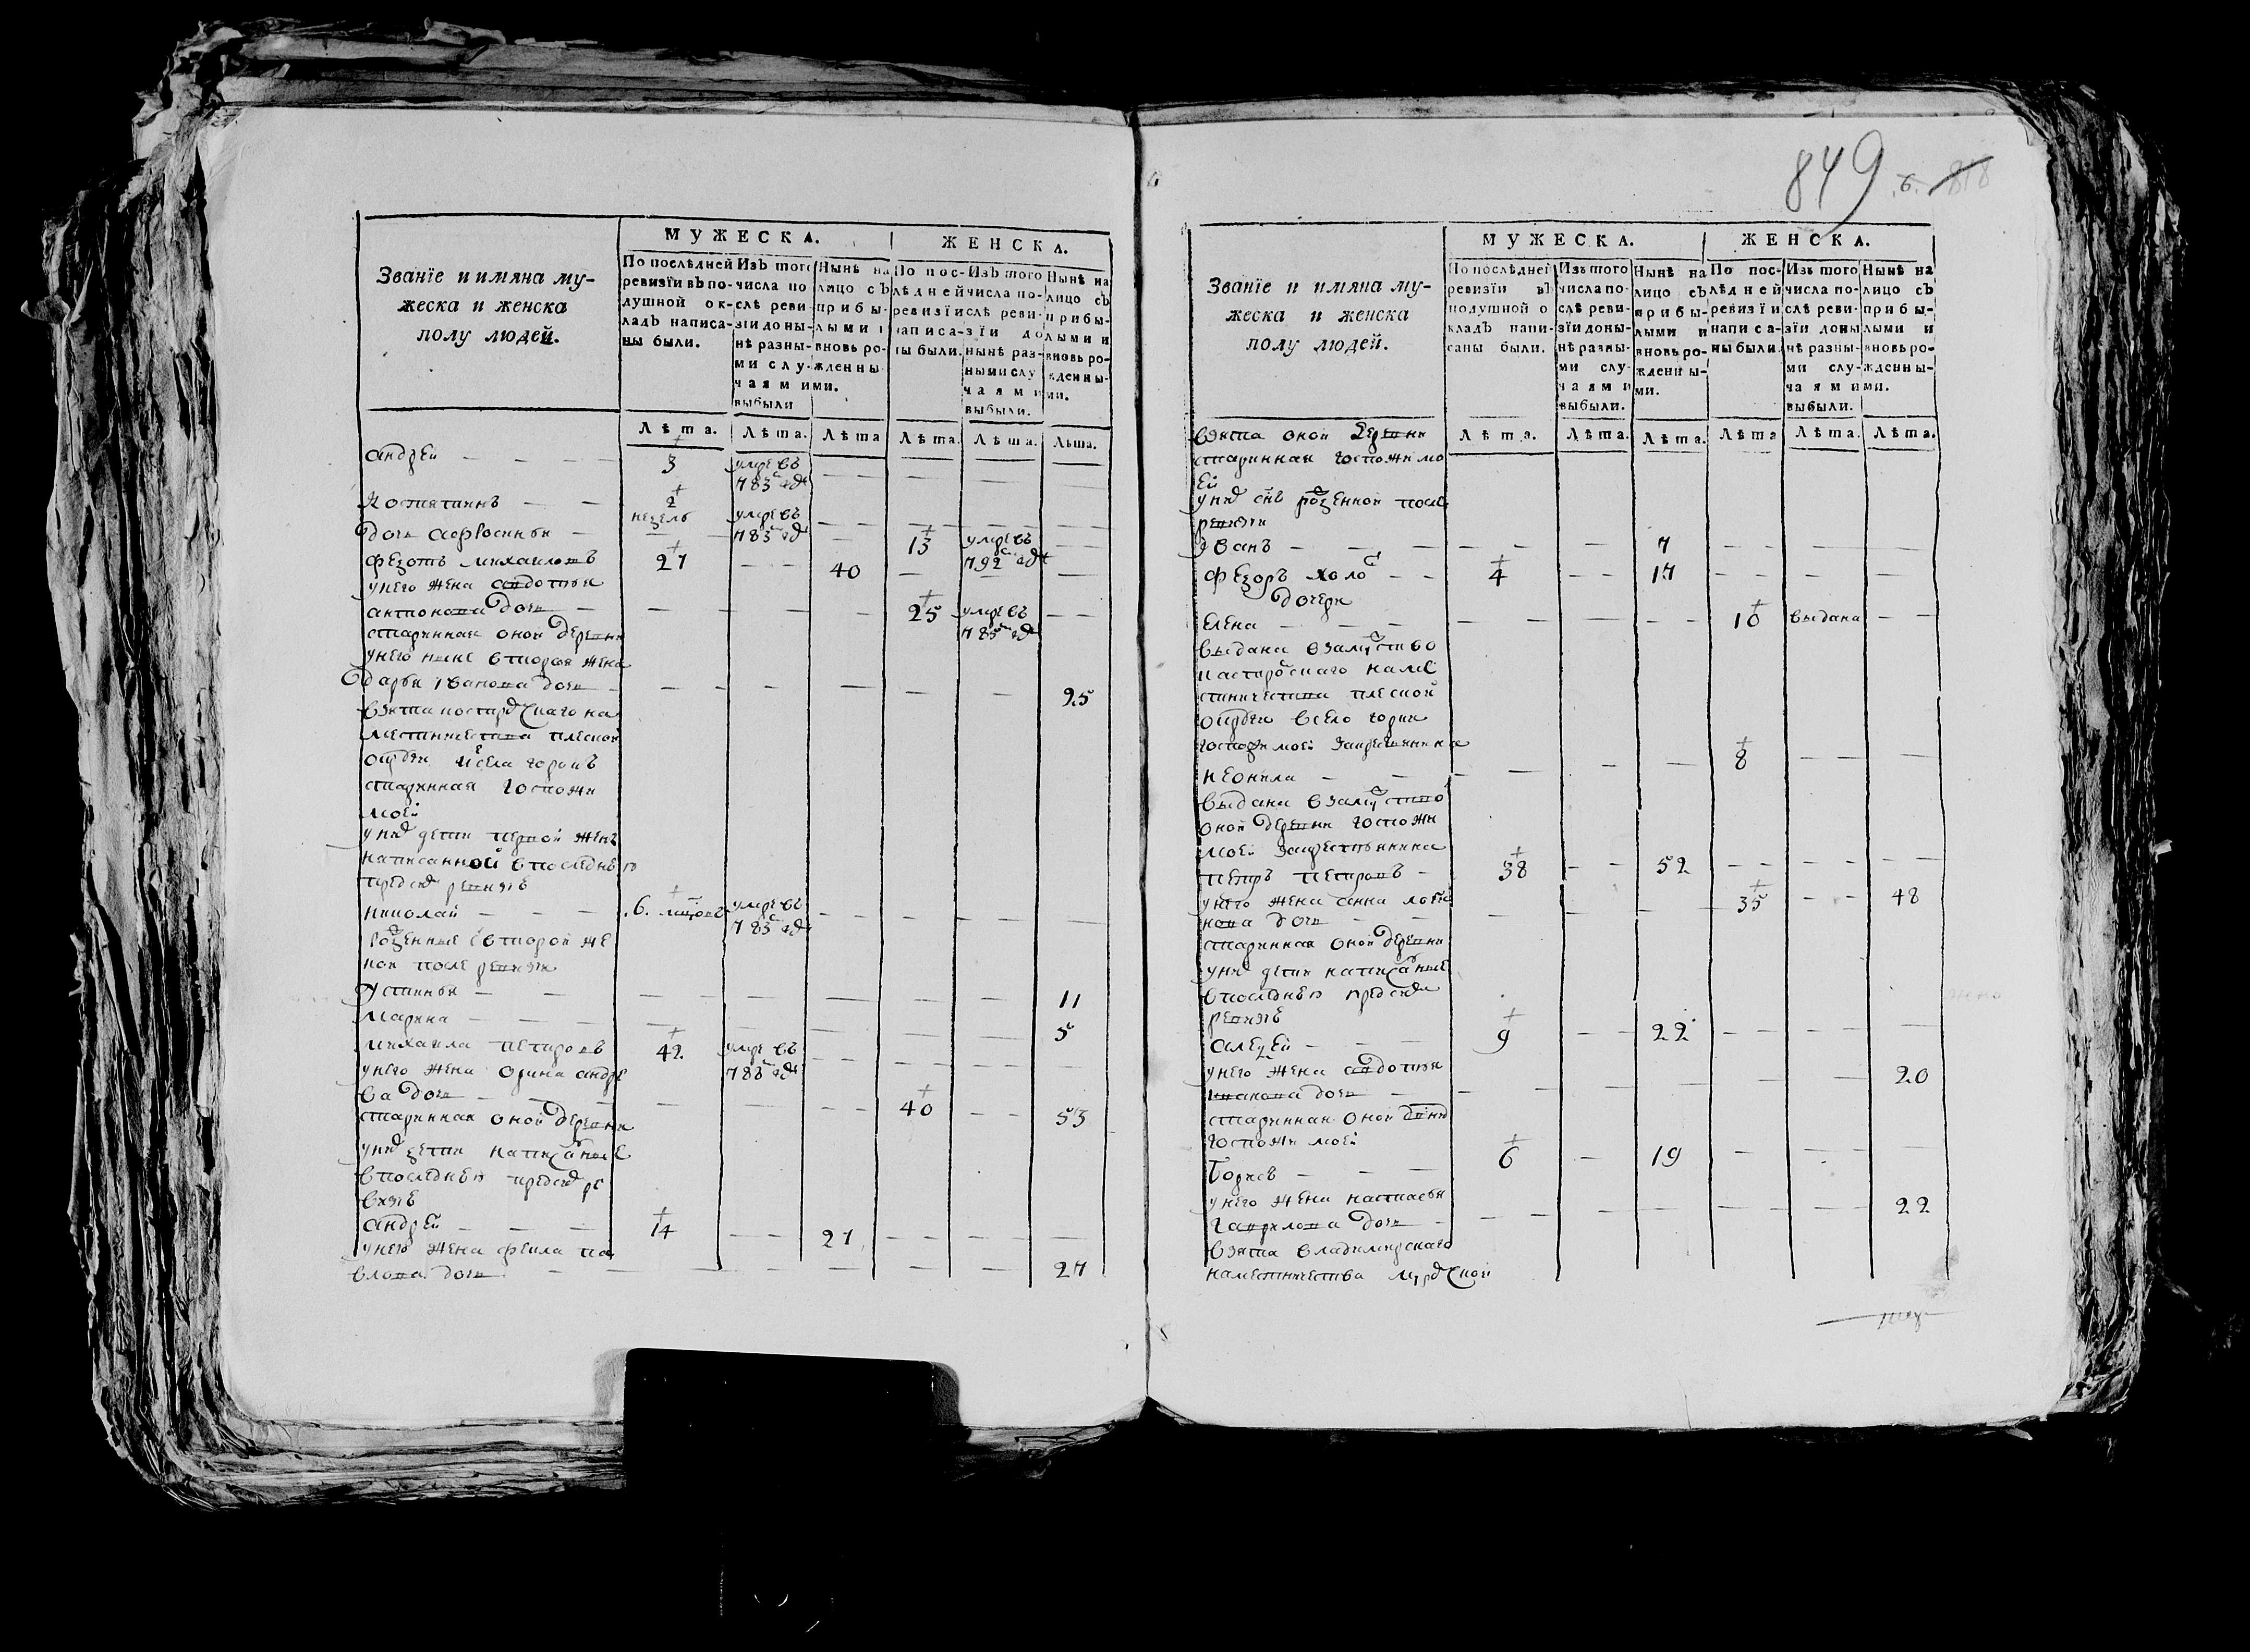 849
Званїе и имяна му-
жеска и женска
полу людей.
МУЖЕСКА.
ЖЕНСКА.
По послѣдней ревизїи въ по-душной ок-ладъ написа-ны были.
Изъ того числа по-слѣ реви-зїи до ны-нѣ разны-ми слу-чаями выбыли
Нынѣ на лицо съ прибы-лыми и вновь ро-жденны-ми.
По пос-лѣдней ревизїи написа-ны были.
Изъ того числа по-слѣ реви-зїи до нынѣ раз-ными слу чаями выбыли.
Нынѣ на лицо съ прибы-лыми и вновь ро-жденны-ми.
Лѣта. Лѣта. Лѣта Лѣта. Лѣта. Лѣта.
андрей — 3 умре въ 783 годе
костянтинъ — 2 недель умре въ 783 годе
дочь афросинья — 13 умре въ 792 годе
федотъ михаиловъ 27 — 40
унего жена авдотья
антонова дочь — 25 умре въ 785 годе
старинная оной деревни
унего ныне вторая жена
дарья иванова дочь — 25
взята костромскаго на
местничества плеской
округи села горокъ
старинная госпожи
моей
уних дети первой жены
написанной впоследнею
пред сим ревизiе
николай — 6. умре въ 783 годе
рожденные свторой же
ной после ревизи
устинья — 11
марина — 5
михаила петровъ 42 умре въ 788 годе
унего жена орина андре
ва дочь — 40 — 53
старинная оной деревни
уних дети написаные
впоследнею пред сим ре
визiе
андрей — 14 — 27
унего жена фекла па
влова дочь — 27
Званїе и имяна му-
жеска и женска
полу людей.
МУЖЕСКА.
ЖЕНСКА.
По послѣдней ревизїи въ подушной о кладъ напи-саны были.
Изъ того числа по-слѣ реви-зїи до ны-нѣ разны-ми слу-чаями выбыли.
Нынѣ на лицо съ прибы-лыми и вновь ро-жденны-ми.
По пос-лѣдней ревизїи написа-ны были.
Изъ того числа по-слѣ реви-зїи до ны нѣ разны-ми слу-чаями выбыли.
Нынѣ на лицо съ прибы-лыми и вновь ро-жденны-ми.
Лѣта. Лѣта. Лѣта. Лѣта Лѣта. Лѣта.
взята оной деревни
старинная госпожи мо
ей
уних снъ рожденной после
ревизи
иванъ — 7
федоръ холос — 4 — 17
дочери
елена — 10 выдана
выдана взамужство
костромскаго наме
стничества плеской
округи всело горки
госпожи моей закрестьянина
неонила — 8
выдана взамужство
оной деревни госпожи
моей закрестьянина
петръ петровъ — 38 — 52
унего жена анна
нова дочь — 35 — 48
старинная оной деревни
уних дети написаные
впоследнею пред сим
ревизiе
алексей — 9 — 22
унего жена авдотья
дочь — 20
старинная оной
госпожи моей
борисъ — 6 — 19
унего жена настасья
гаврилова дочь — 22
взята владимирскаго
наместничества муромской